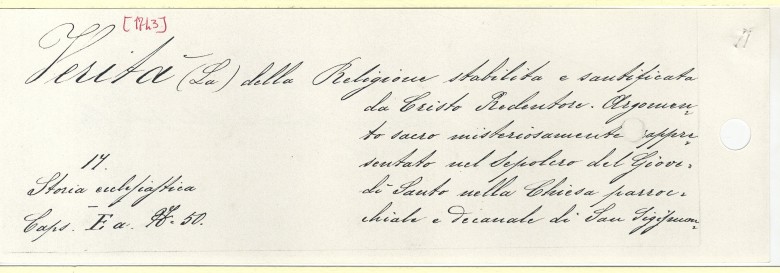 [1743]
Verità (La) della Religione stabilita e santificata
da Cristo Redentore. Argomen-
to sacro misteriosamente appre-
sentato nel Sepolcro del Giove-
dì Santo nella Chiesa parroc-
chiale e decanale di San Sigismon-
17.
Storia eclesiastica
Caps. I a. 50.